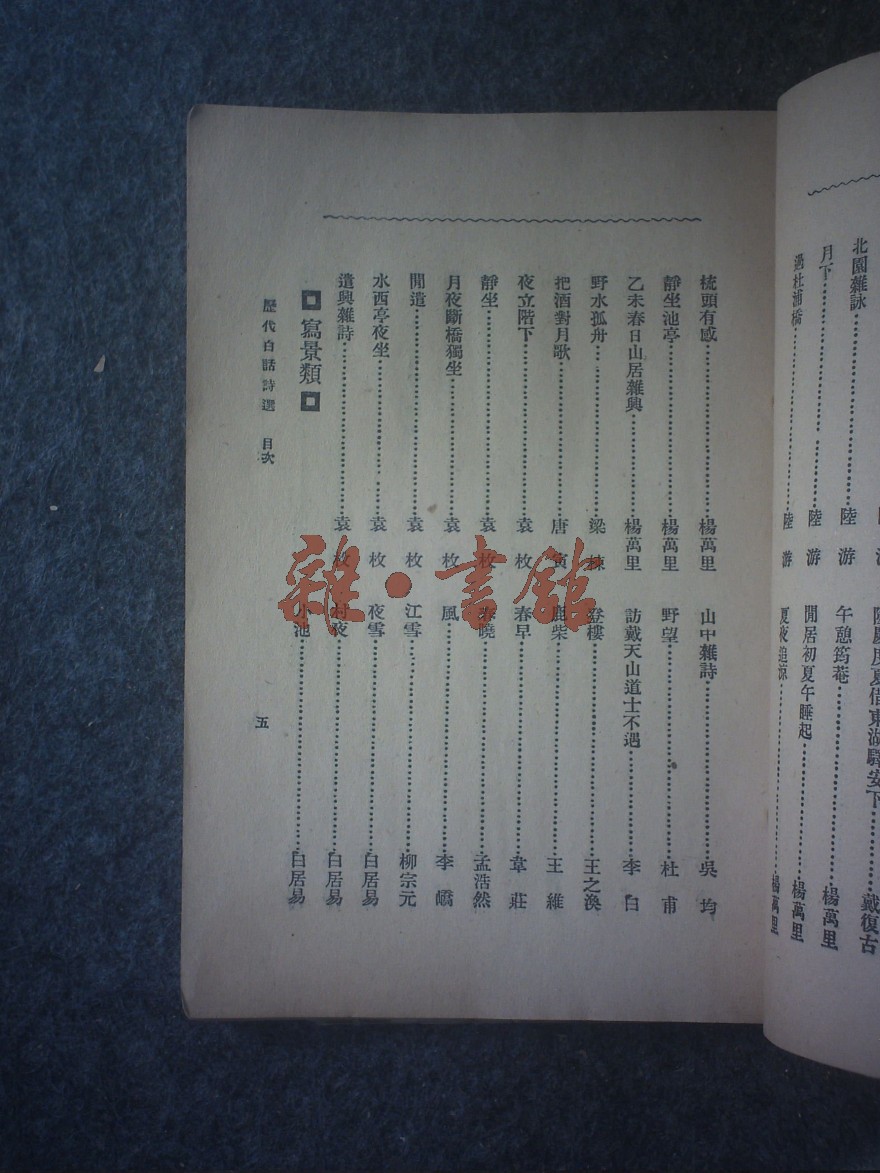 北園雜詠……陸游
月下……陸游
過杜浦橋……陸游
度夏借東湖驛安下……戴復古
午憩筠菴……楊萬里
閒居初夏午睡起……楊萬里
夏夜追涼……楊萬里
梳頭有感……楊萬里
靜坐池亭……楊萬里
乙未春日山居雜興……楊萬里
野水孤舟……梁棟
把酒對月歌……唐寅
夜立階下……袁枚
靜坐……袁枚
月夜斷橋獨坐……袁枚
閒遣……袁枚
水西亭夜坐……袁枚
遣興雜詩……袁枚
寫景類
山中雜詩……吳均
野望……杜甫
訪戴天山道士不遇……李白
登樓……王之渙
鹿柴……王維
春早……韋莊
春曉……孟浩然
風……李嶠
江雪……柳宗元
夜雪……白居易
村夜……白居易
小池……白居易
歷代白話詩選 目次
五
雜·書館